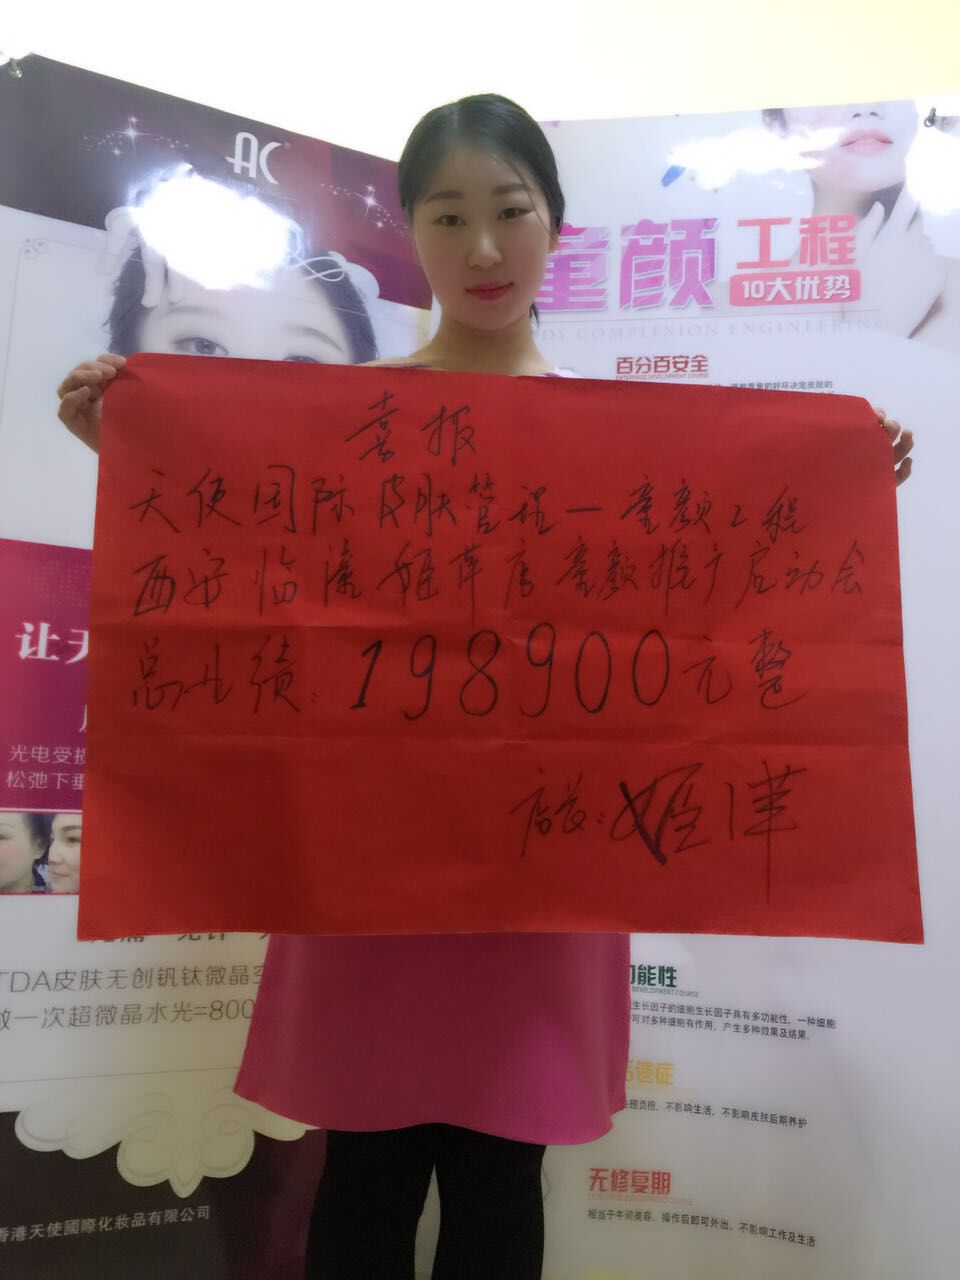 AC
HONG KONG
童颜 工程
10大优势
BODY COMPLEXION ENGINEERING
百分百安全
喜报
天使国际皮肤管理一童颜工程
西安临潼姬萍店童颜推广启动会
总业绩:198900元整
店长:姬萍
让天
光电受损
松弛下垂
TDA皮肤无创钒钛微晶空
做一次超微晶水光=800
香港天使國際化妝品有限公司
功能性
DEVELOPMENT COURSE
生长因子的细胞生长因子具有多功能性,一种细胞
可对多种细胞有作用,产生多种效果及结果.
后遗症
心理负担,不影响生活,不影响皮肤后期养护
无修复期
相当于午间美容,操作后即可外出,不影响工作及生活